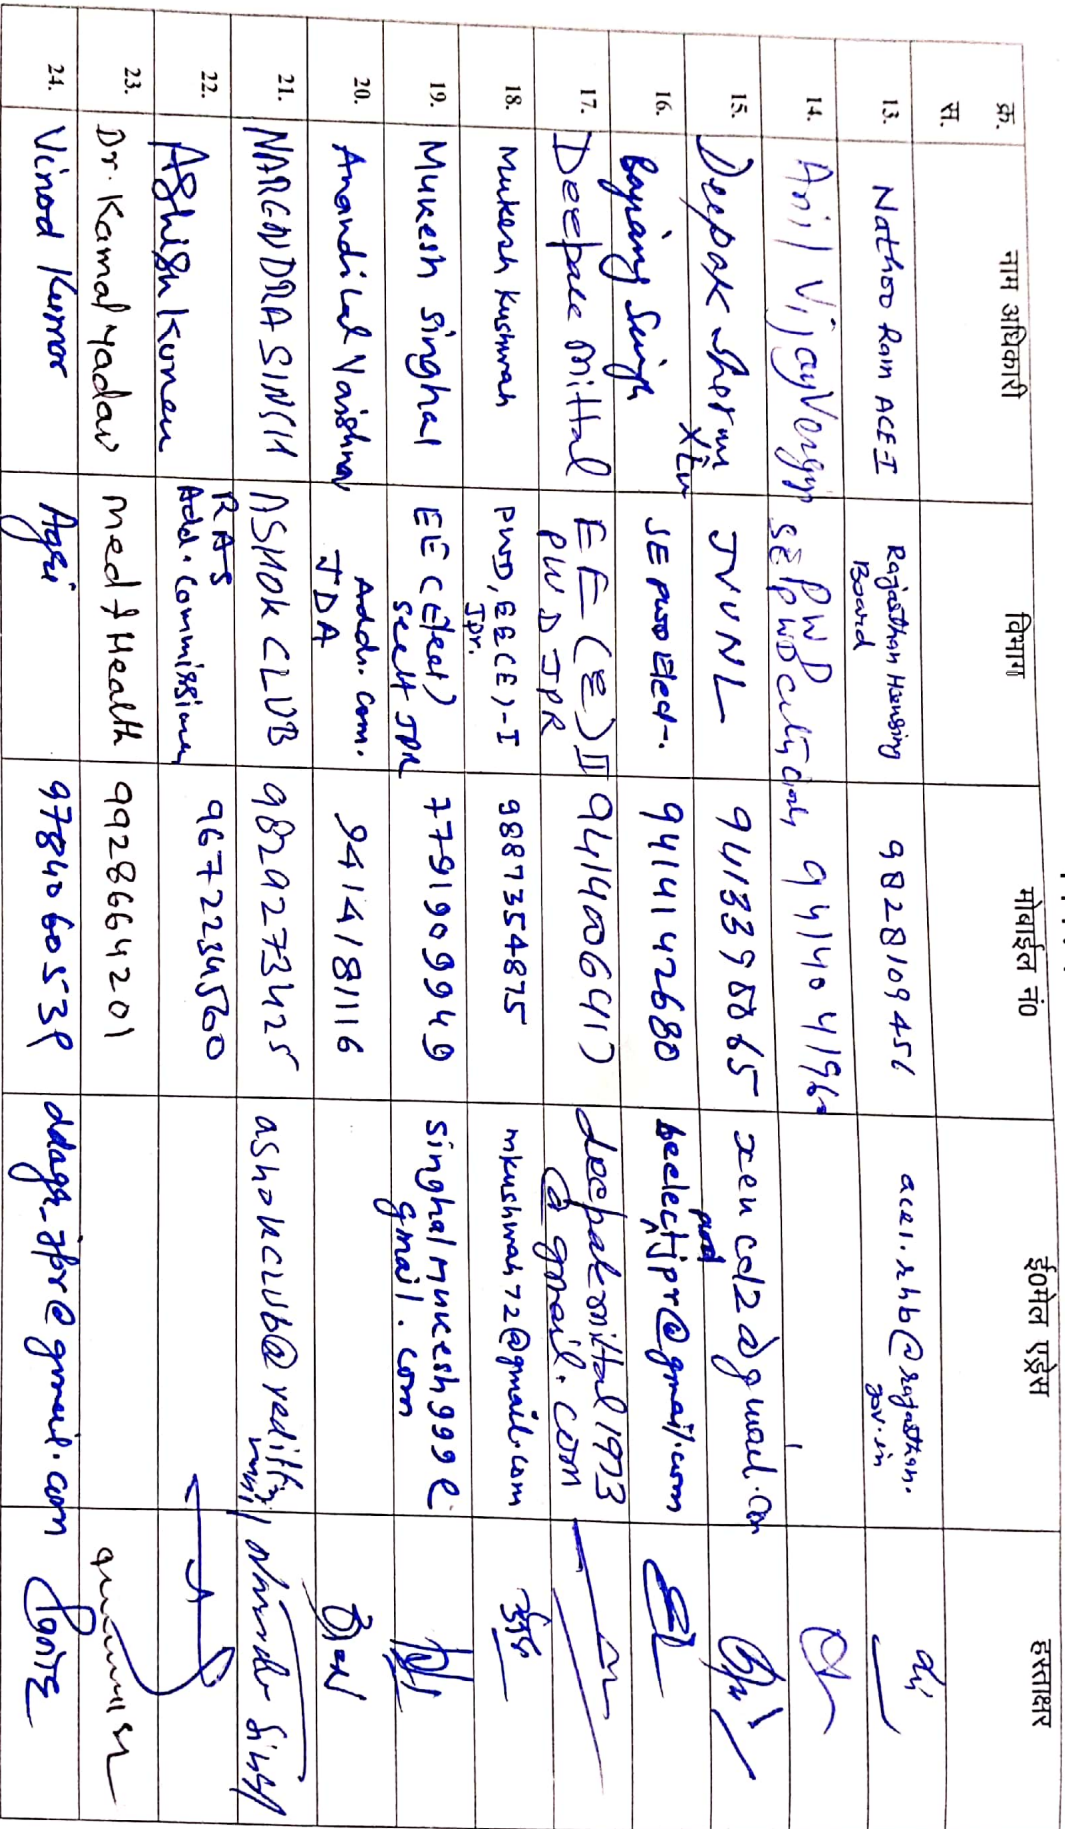 क्र. स. नाम अधिकारी विभाग मोबाईल नं0 ई0मेल एड्रेस हस्ताक्षर
13. Nathoo Ram ACE I Rajasthan Housing Board 982810945 acei.rhb@rajasthan.gov.in
14. Anil Vijayvergiya PWD SE PWD City 9414041960
15. Deepak Sharma XEN JVVNL 9413390065 xencd2@gmail.com
16. Bajrang Singh SE PWD Elect. 9414142680 seelectpwdjpr@gmail.com
17. Deepak Mittal EE (E) II PWD JPR 9414006417 deepakmittal1973@gmail.com
18. Mukesh Kushwah PWD, EE(E)-I Jpr. 9887354875 mkushwah72@gmail.com
19. Mukesh Singhal EE (Elect) JPR 7791909949 singhalmukesh999@gmail.com
20. Anandilal Vaishnav Addl. Com. JDA 9414181116
21. NARENDRA SINGH ASHOK CLUB 9829273425 ashokclub@rediffmail Narendra Singh
22. Ashish Kumar RAS Add. Commissioner 9672234560
23. Dr. Kamal Yadav Med & Health 9928664201
24. Vinod Kumar Agri 9784060539 ddagr_jpr@gmail.com